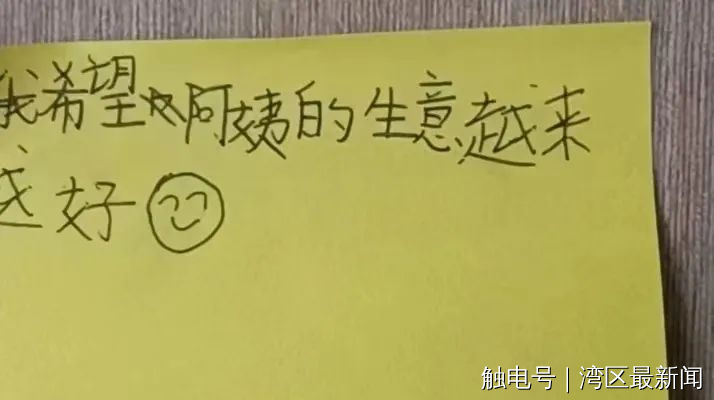 我希望阿姨的生意越来
越好
触电号 | 湾区最新闻